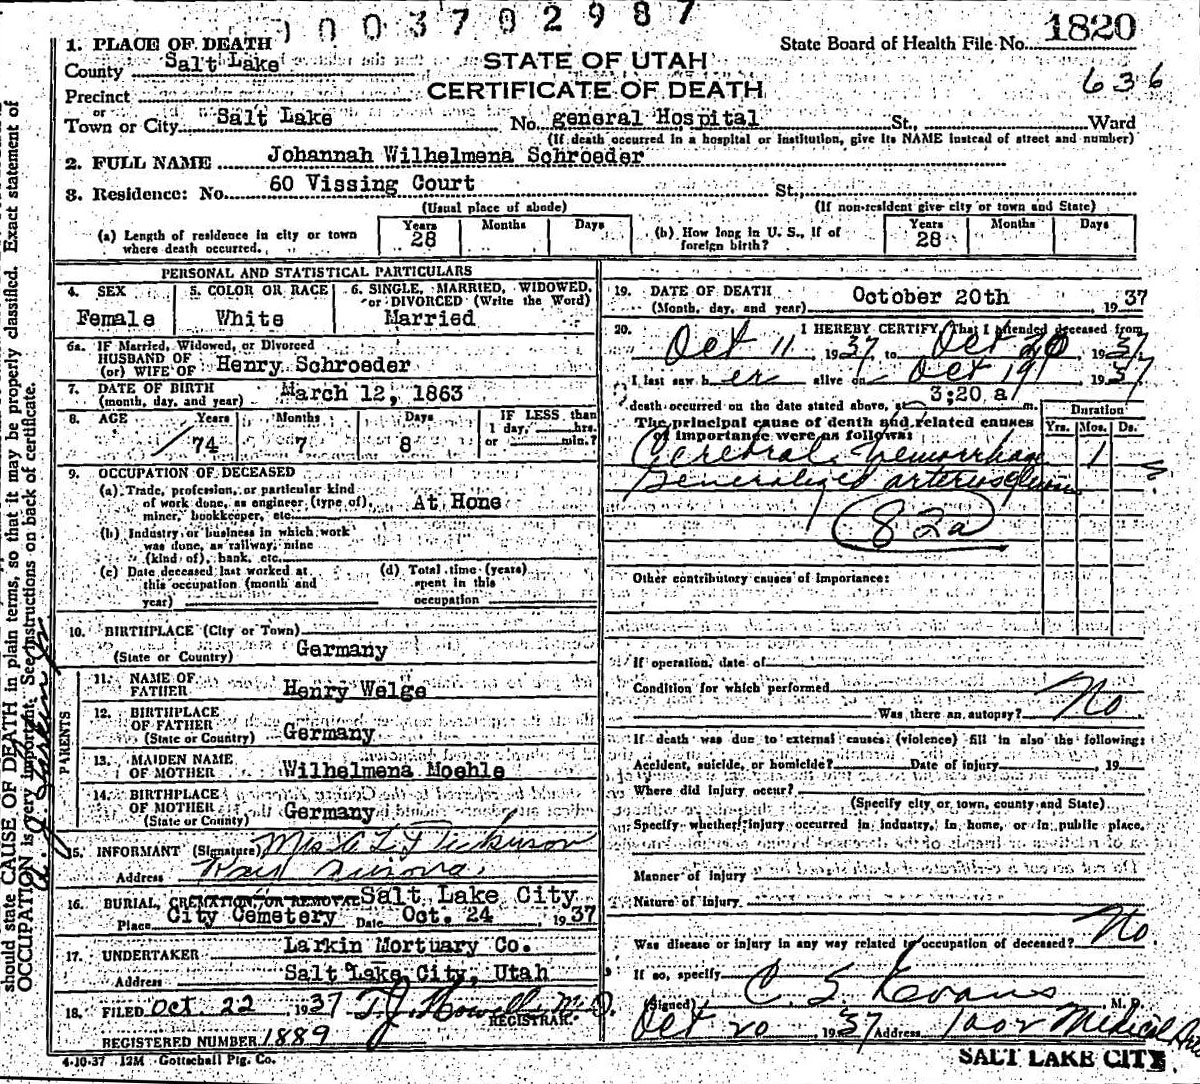 1003702987
1820
1. PLACE OF DEATH
State Board of Health File No.
County Salt Lake
STATE OF UTAH
636
Precinct
CERTIFICATE OF DEATH
or
Town or City Salt Lake No. general Hospital St., Ward
(If death occurred in a hospital or institution, give its NAME instead of street and number)
2. FULL NAME Johannah Wilhelmena Schroeder
3. Residence: No. 60 Vissing Court St.,
(Usual place of abode) (If non-resident give city or town and State)
(a) Length of residence in city or town where death occurred. Years 28 Months Days
(b) How long in U. S., if of foreign birth? Years 28 Months Days
PERSONAL AND STATISTICAL PARTICULARS
4. SEX Female
5. COLOR OR RACE White
6. SINGLE, MARRIED, WIDOWED, or DIVORCED (Write the Word) Married
6a. IF Married, Widowed, or Divorced
HUSBAND OF
(or) WIFE OF Henry Schroeder
7. DATE OF BIRTH
(month, day, and year) March 12, 1863
8. AGE Years 74 Months 7 Days 8 IF LESS than 1 day, hrs. or min.?
9. OCCUPATION OF DECEASED
(a) Trade, profession, or particular kind
of work done, as engineer (type of), At Hone
miner, bookkeeper, etc.
(b) Industry or business in which work
was done, as railway, mine
(kind of), bank, etc.
(c) Date deceased last worked at
this occupation (month and
year)
(d) Total time (years)
spent in this
occupation
10. BIRTHPLACE (City or Town)
(State or Country) Germany
PARENTS
11. NAME OF
FATHER Henry Welge
12. BIRTHPLACE
OF FATHER
(State or Country) Germany
13. MAIDEN NAME
OF MOTHER Wilhelmena Moehle
14. BIRTHPLACE
OF MOTHER
(State or Country) Germany
15. INFORMANT (Signature) Mrs
Address Ray Arizona.
16. BURIAL, CREMATION, OR REMOVAL Salt Lake City
Place City Cemetery Date Oct. 24 1937
17. UNDERTAKER Larkin Mortuary Co.
Address Salt Lake City, Utah
18. FILED Oct. 22 1937 T.J. Howells M.D.
REGISTRAR.
REGISTERED NUMBER 1889
4-10-37 12M Gottschall Ptg. Co.
19. DATE OF DEATH
(Month, day, and year) October 20th 1937
20. I HEREBY CERTIFY, That I attended deceased from
Oct 11 1937, to Oct 20 1937,
I last saw her alive on Oct 19 1937
death occurred on the date stated above, at 3:20 a m.
The principal cause of death and related causes
of importance were as follows:
Duration
Yrs. Mos. Ds.
Cerebral hemorrhage 1
Generalized arteriosclerosis
82a
Other contributory causes of importance:
If operation, date of
Condition for which performed
Was there an autopsy? No
If death was due to external causes (violence) fill in also the following:
Accident, suicide, or homicide? Date of injury 19
Where did injury occur?
(Specify city or town, county and State)
Specify whether injury occurred in industry, in home, or in public place.
Manner of injury
Nature of Injury
Was disease or injury in any way related to occupation of deceased? No
If so, specify
(Signed) C. S. Evans M. D.
Oct 20 1937 Address Medical Arts
SALT LAKE CITY
should state CAUSE OF DEATH in plain terms, so that it may be properly classified. Exact statement of
OCCUPATION is very important. See instructions on back of certificate.